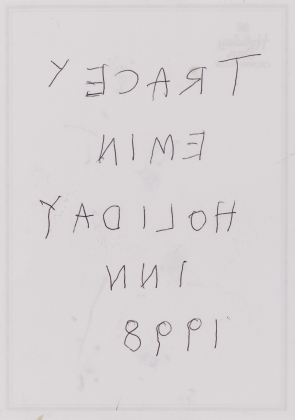 TRACEY
EMIN
HOLIDAY
INN
1998